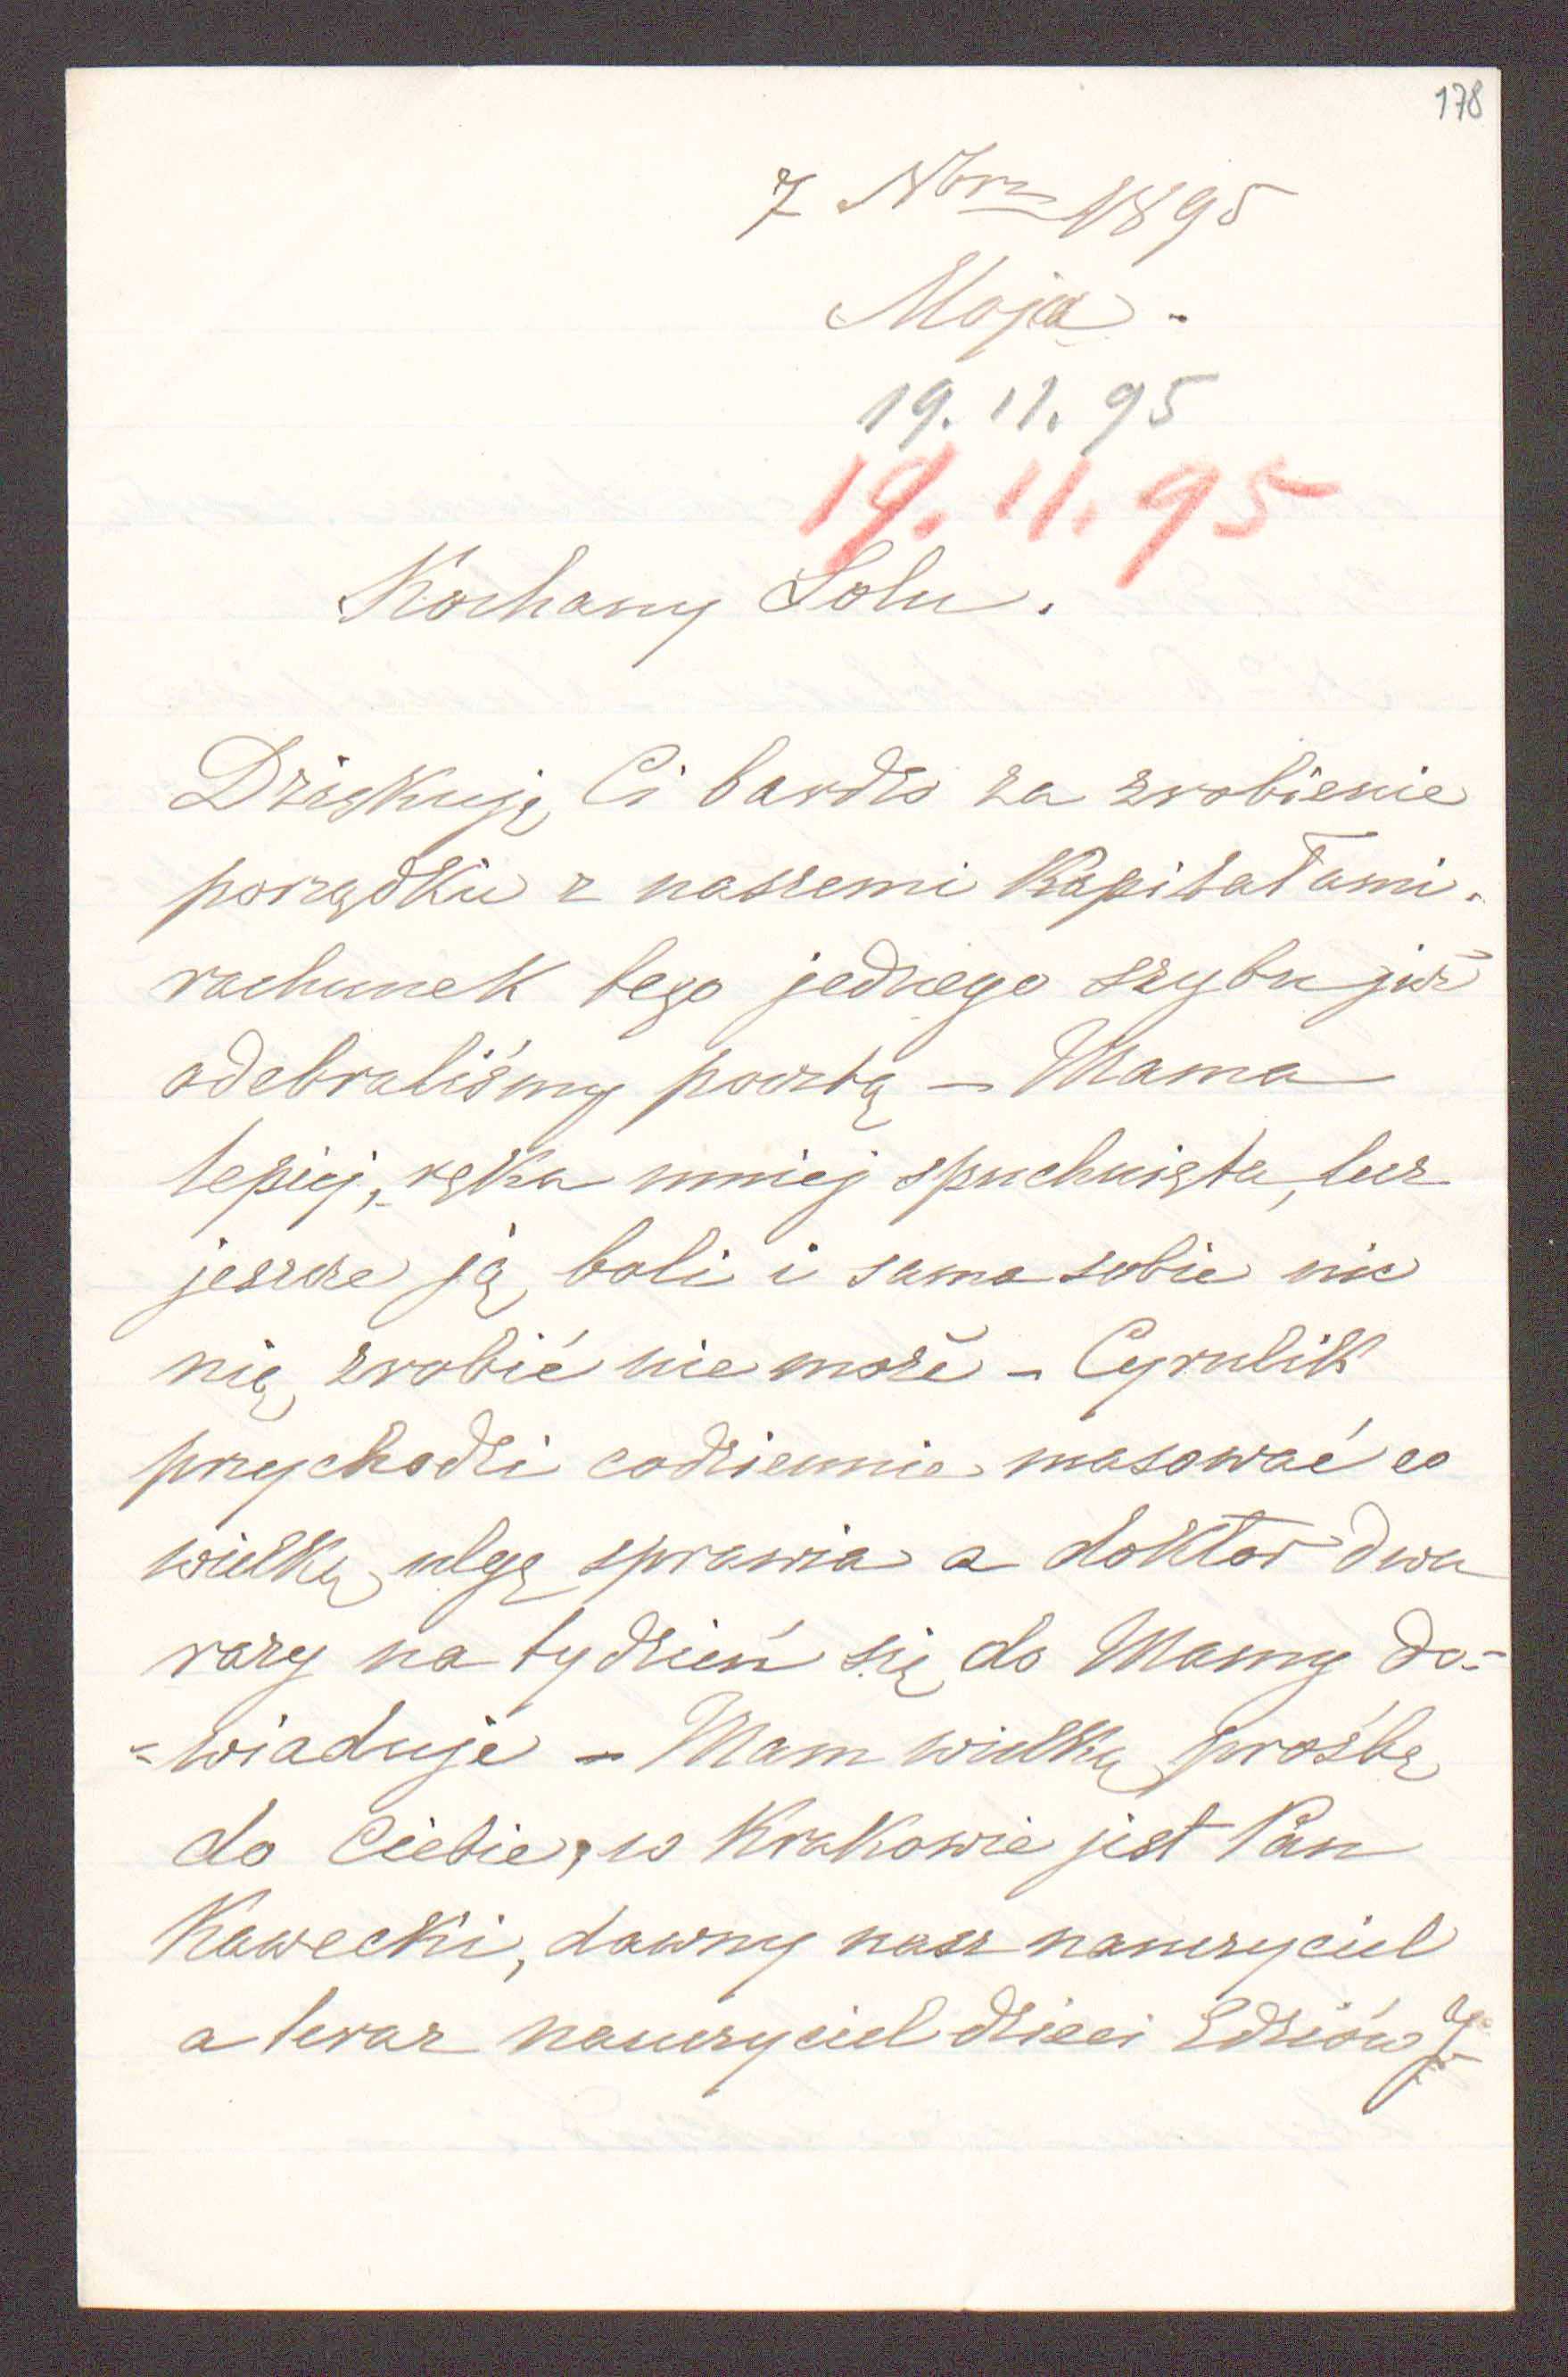 178
7 Nbra 1895
Moja -
19. 11. 95
19. 11. 95
Kochany Lolu.
Dziękuję Ci bardzo za zrobienie
porządku z naszemi Kapitałami.
rachunek tego jednego szybu już
odebraliśmy pocztą – Mama
lepiej, ręka mniej spuchnięta, lecz
jeszcze ją boli i sama sobie nic
nią zrobić nie może – Cyrulik
przychodzi codziennie masować co
wielką ulgę sprawia a doktor dwa
razy na tydzień się do Mamy do-
-wiaduje – Mam wielką prośbę
do Ciebie, w Krakowie jest Pan
Kawecki, dawny nasz nauczyciel
a teraz nauczyciel dzieci Edziów